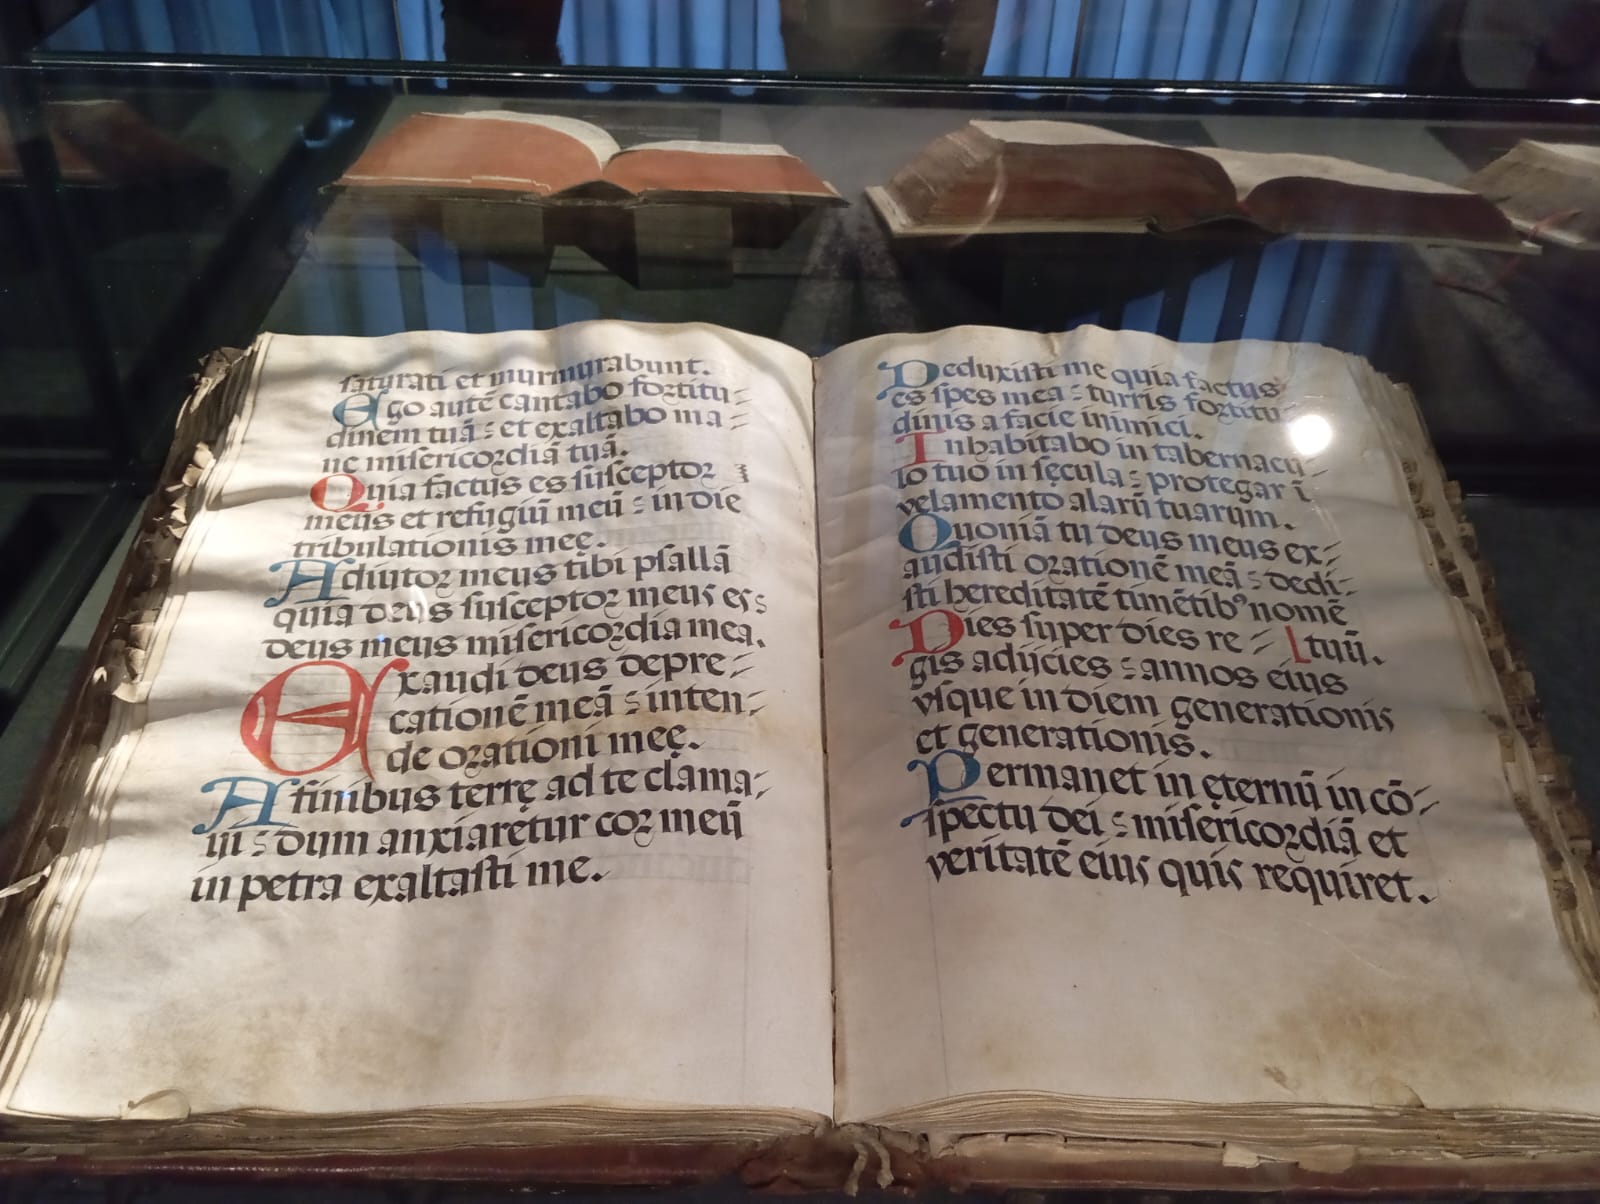 saturati et murmurabunt.
Ego autē cantabo fortitu-
dinem tuā : et exaltabo ma-
ne misericordiā tuā.
Quia factus es susceptor
meus et refugiū meū : in die
tribulationis meę.
Adiutor meus tibi psallā
quia deus susceptor meus es :
deus meus misericordia mea.
Exaudi deus depre-
cationē meā : inten-
de orationi meę.
A finibus terrę ad te clama-
ui : dum anxiaretur cor meū
in petra exaltasti me.
Deduxisti me quia factus
es spes mea : turris fortitu-
dinis a facie inimici.
Inhabitabo in tabernacu-
lo tuo in sęcula : protegar ī
velamento alarū tuarum.
Quoniā tu deus meus ex-
audisti orationē meā : dedi-
sti hereditatē timētibꝰ nomē
Dies super dies re- tuū.
gis adijcies : annos eius
vsque in diem generationis
et generationis.
Permanet in ęternū in cō-
spectu dei : misericordiā et
veritatē eius quis requiret.